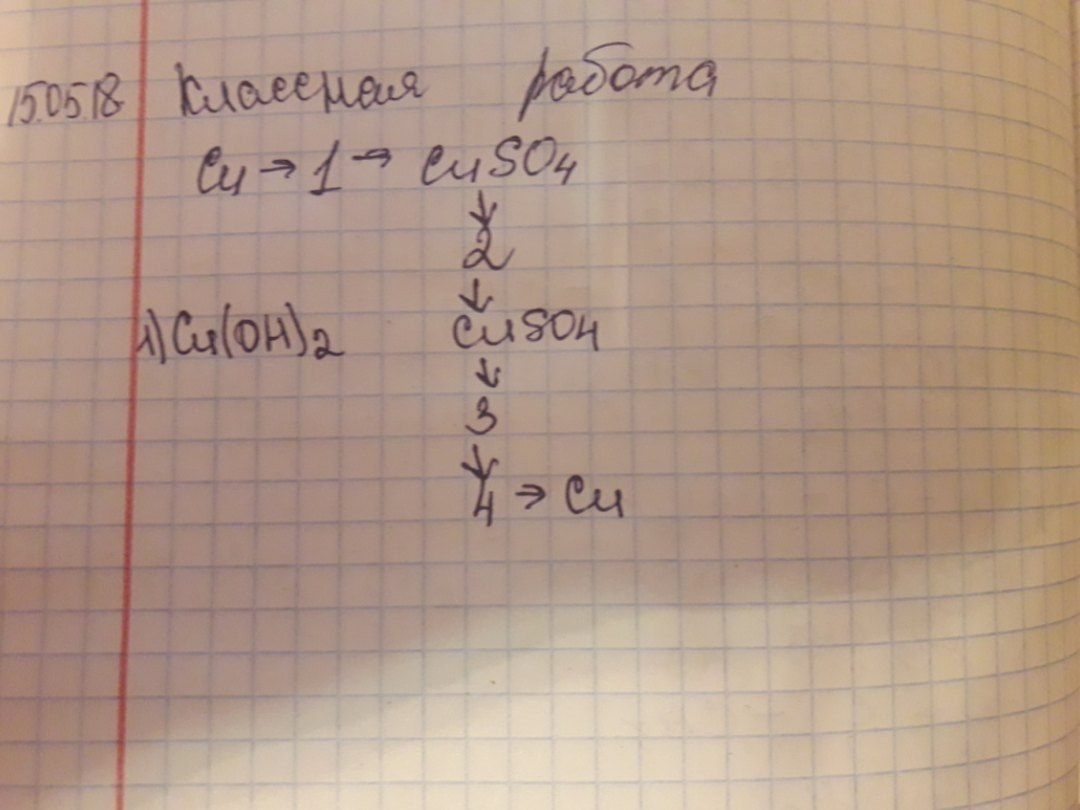 150518 Классная работа
Cu → 1 → CuSO4
↓
2
↓
1) Cu(OH)2 CuSO4
↓
3
↓
4 → Cu